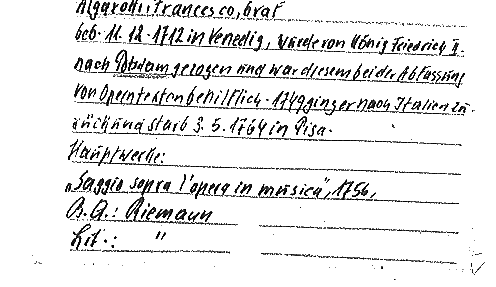 Algarotti, Francesco, Graf
Geb. 11. 12. 1712 in Venedig, wurde von König Friedrich II.
nach Potsdam gezogen und war diesem bei der Abfassung
von Operntexten behilflich. 1749 ging er nach Italien zu-
rück und starb 3. 5. 1764 in Pisa.
Hauptwerke:
„Saggio sopra l'opera in musica", 1756,
B.Q.: Riemann
Lit.: "